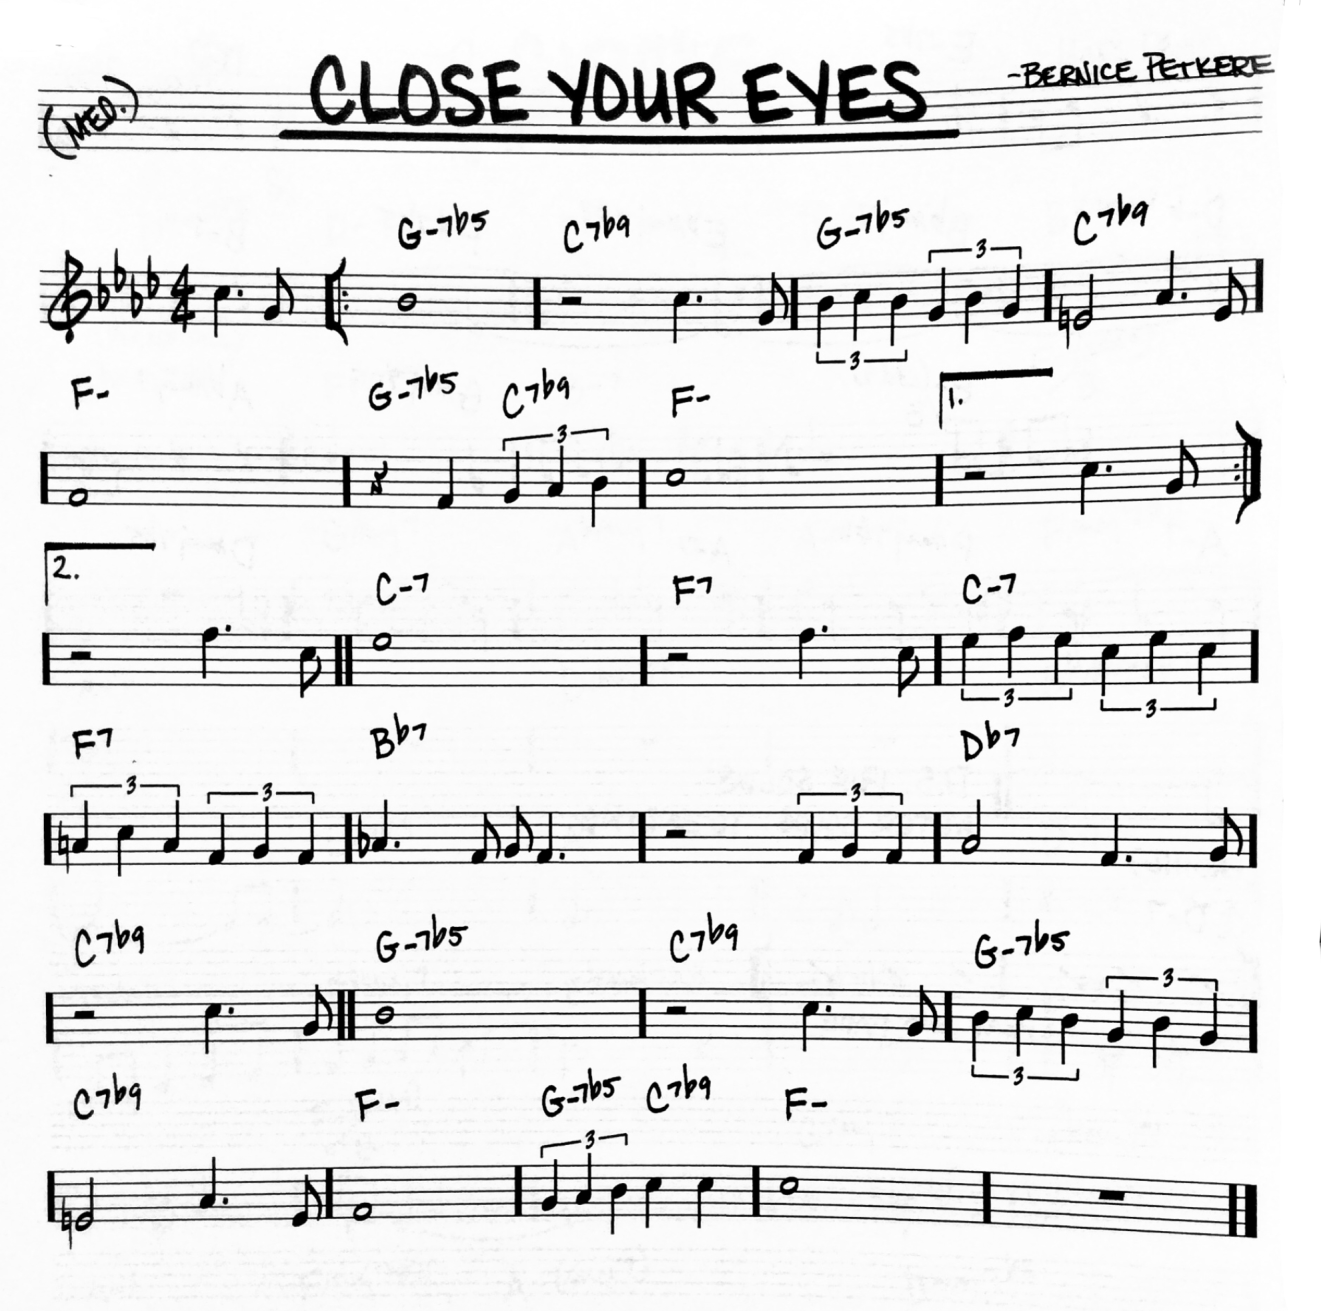 CLOSE YOUR EYES
-BERNICE PETKERE
(MED.)
G-7b5 C7b9 G-7b5 C7b9
3
4
4
3
F- G-7b5 C7b9 F- 1.
3
2.
C-7 F7 C-7
3 3
F7 Bb7 Db7
3 3 3
C7b9 G-7b5 C7b9 G-7b5
3
3
C7b9 F- G-7b5 C7b9 F-
3